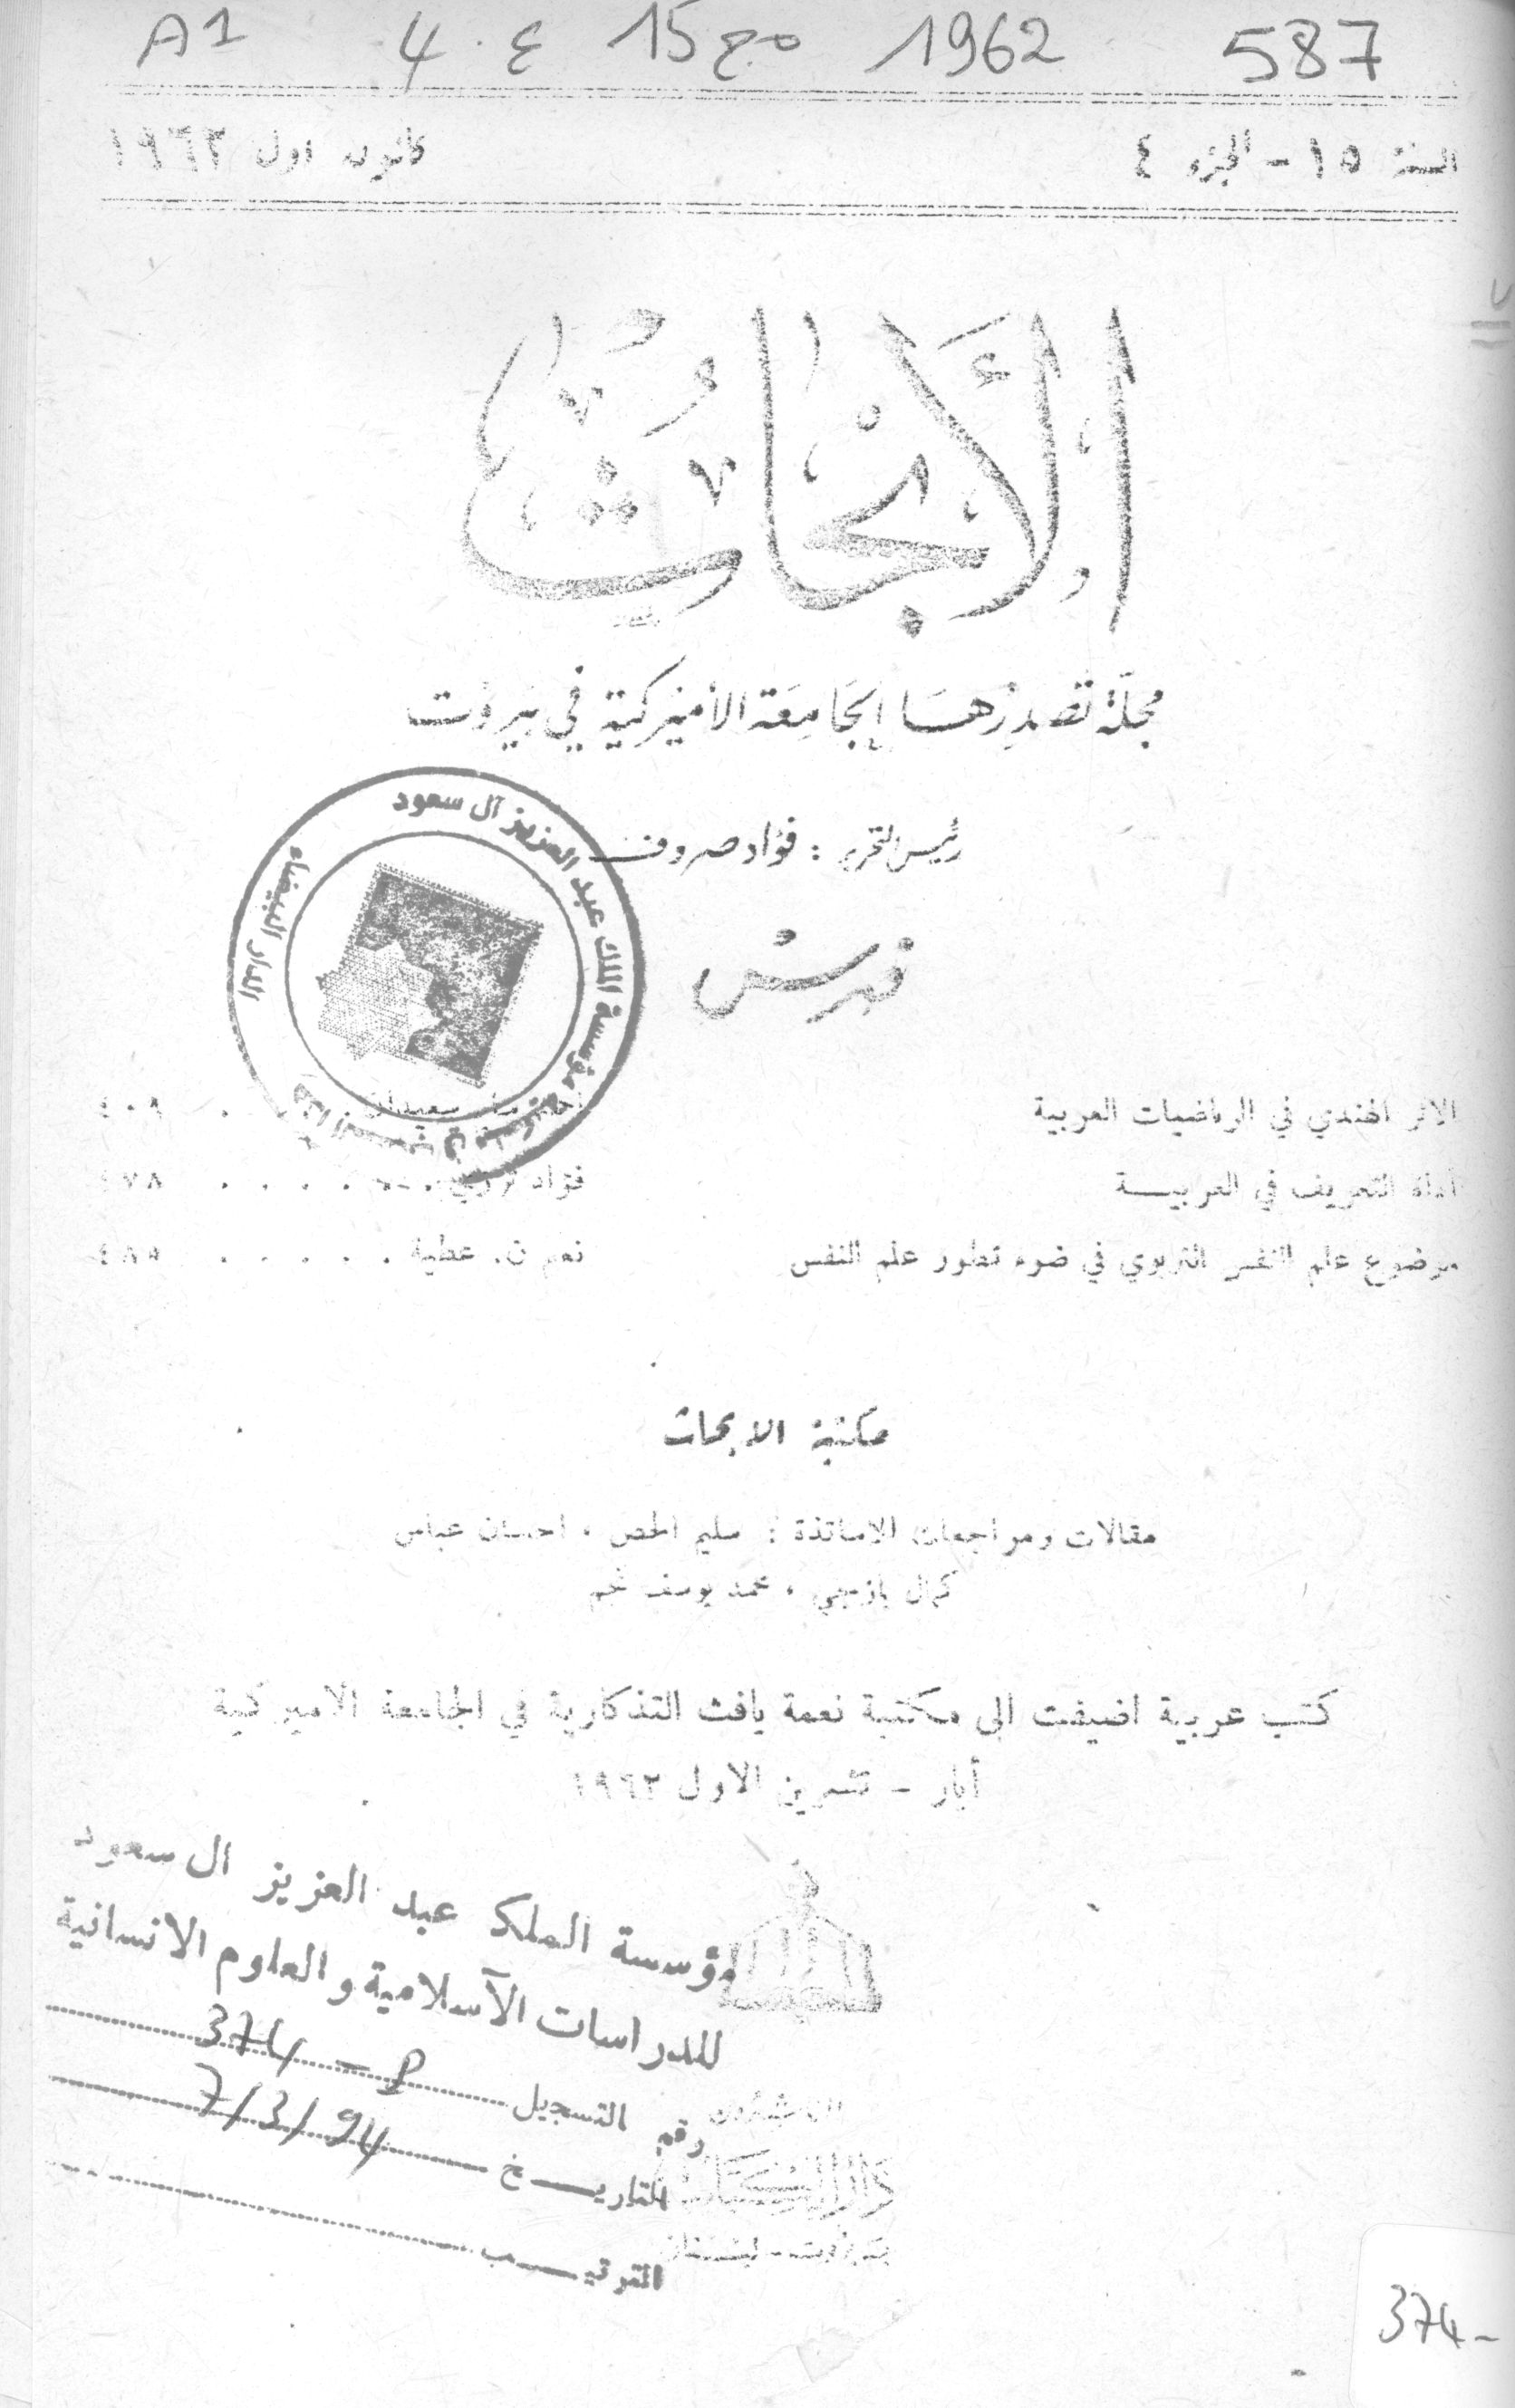 587 1962 مج 15 ع . 4 A1
السنة ١٥ - الجزء ٤ كانون اول ١٩٦٢
الأبحاث
مجلة تصدرها الجامعة الأميركية في بيروت
رئيس التحرير : فؤاد صروف
فهرس
الاثر الهندي في الرياضيات العربية سعيدان . . . ٤٠٩
أداة التعريف في العربيـــة فؤاد ترزي . . . . . . ٤٧٨
موضوع علم النفس التربوي في ضوء تطور علم النفس نعيم ن. عطية . . . . . . ٤٨٥
مكتبة الابحاث
مقالات ومراجعات الاساتذة : سليم الحص ، احسان عباس
كمال يازجي ، محمد يوسف نجم
كتب عربية اضيفت الى مكتبة نعمة يافث التذكارية في الجامعة الاميركية
أيار - تشرين الاول ١٩٦٢
مؤسسة الملك عبد العزيز آل سعود
الدار البيضاء
مؤسسة الملك عبد العزيز ال سعود
للدراسات الآسلامية و العلوم الانسانية
رقم التسجيل P - 374
التاريـــخ 7/3/94
الترتيـــب
دار الكتاب
بيروت - لبنان
374-